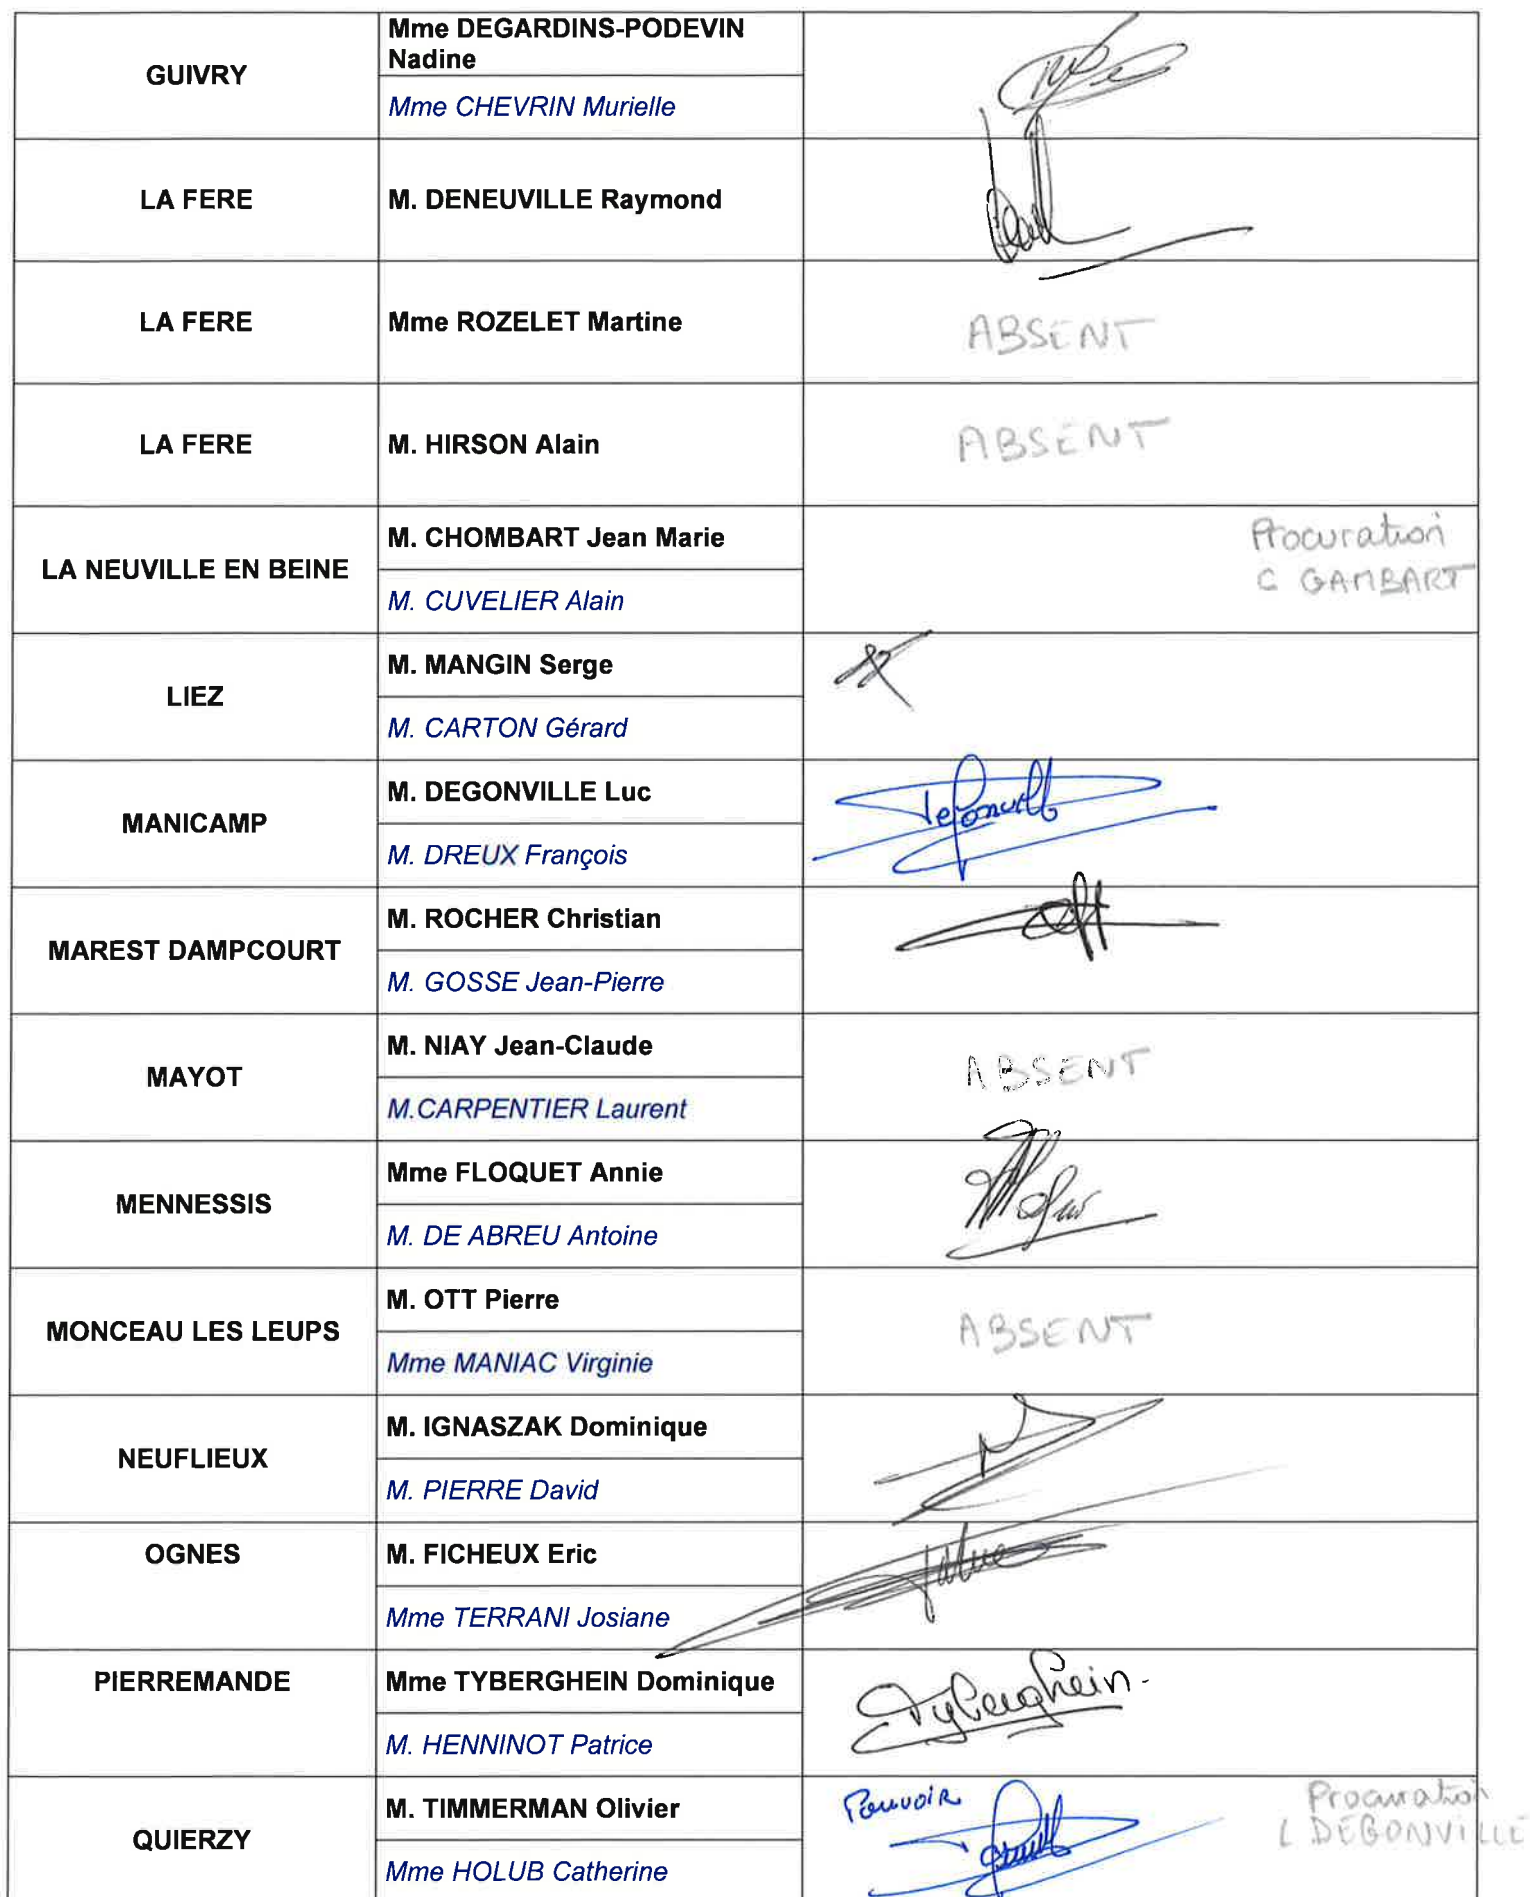 GUIVRY
Mme DEGARDINS-PODEVIN
Nadine
Mme CHEVRIN Murielle
LA FERE
M. DENEUVILLE Raymond
LA FERE
Mme ROZELET Martine
ABSENT
LA FERE
M. HIRSON Alain
ABSENT
LA NEUVILLE EN BEINE
M. CHOMBART Jean Marie
M. CUVELIER Alain
Procuration
C GAMBART
LIEZ
M. MANGIN Serge
M. CARTON Gérard
MANICAMP
M. DEGONVILLE Luc
M. DREUX François
MAREST DAMPCOURT
M. ROCHER Christian
M. GOSSE Jean-Pierre
MAYOT
M. NIAY Jean-Claude
M.CARPENTIER Laurent
ABSENT
MENNESSIS
Mme FLOQUET Annie
M. DE ABREU Antoine
MONCEAU LES LEUPS
M. OTT Pierre
Mme MANIAC Virginie
ABSENT
NEUFLIEUX
M. IGNASZAK Dominique
M. PIERRE David
OGNES
M. FICHEUX Eric
Mme TERRANI Josiane
PIERREMANDE
Mme TYBERGHEIN Dominique
M. HENNINOT Patrice
Tyberghein
QUIERZY
M. TIMMERMAN Olivier
Mme HOLUB Catherine
Pouvoir
Procuration
L DEGONVILLE